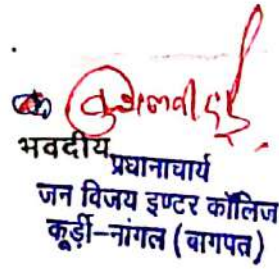 भवदीय
प्रधानाचार्य
जन विजय इण्टर कॉलिज
कूर्ड़ी-नांगल (बागपत)